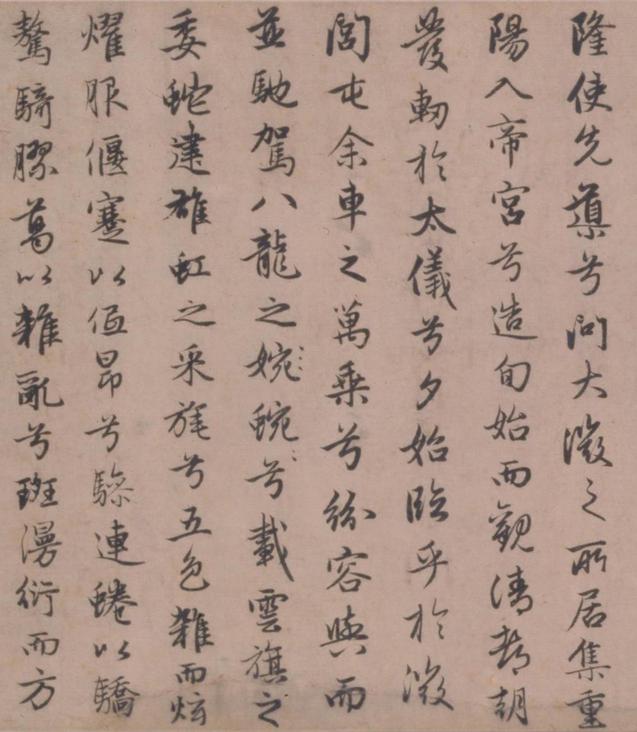 隆使先導兮問大微之所居集重
陽入帝宮兮造旬始而觀清都朝
發軔於太儀兮夕始臨乎於微
閭屯余車之萬乘兮紛容與而
並馳駕八龍之婉蜿兮載雲旗之
委蛇建雄虹之采旄兮五色雜而炫
燿服偃蹇以低昂兮驂連蜷以驕
驁騎膠葛以雜亂兮斑漫衍而方